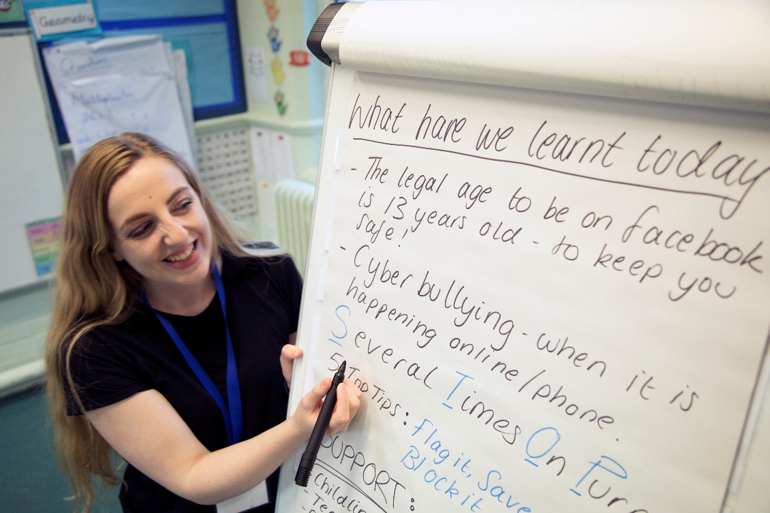 Geometry
What have we learnt today
- The legal age to be on facebook
is 13 years old - to keep you
safe!
- Cyber bullying - when it is
happening online/phone.
Several Times On Purp
5 Top Tips: Flag it, Save
Block it
SUPPORT: